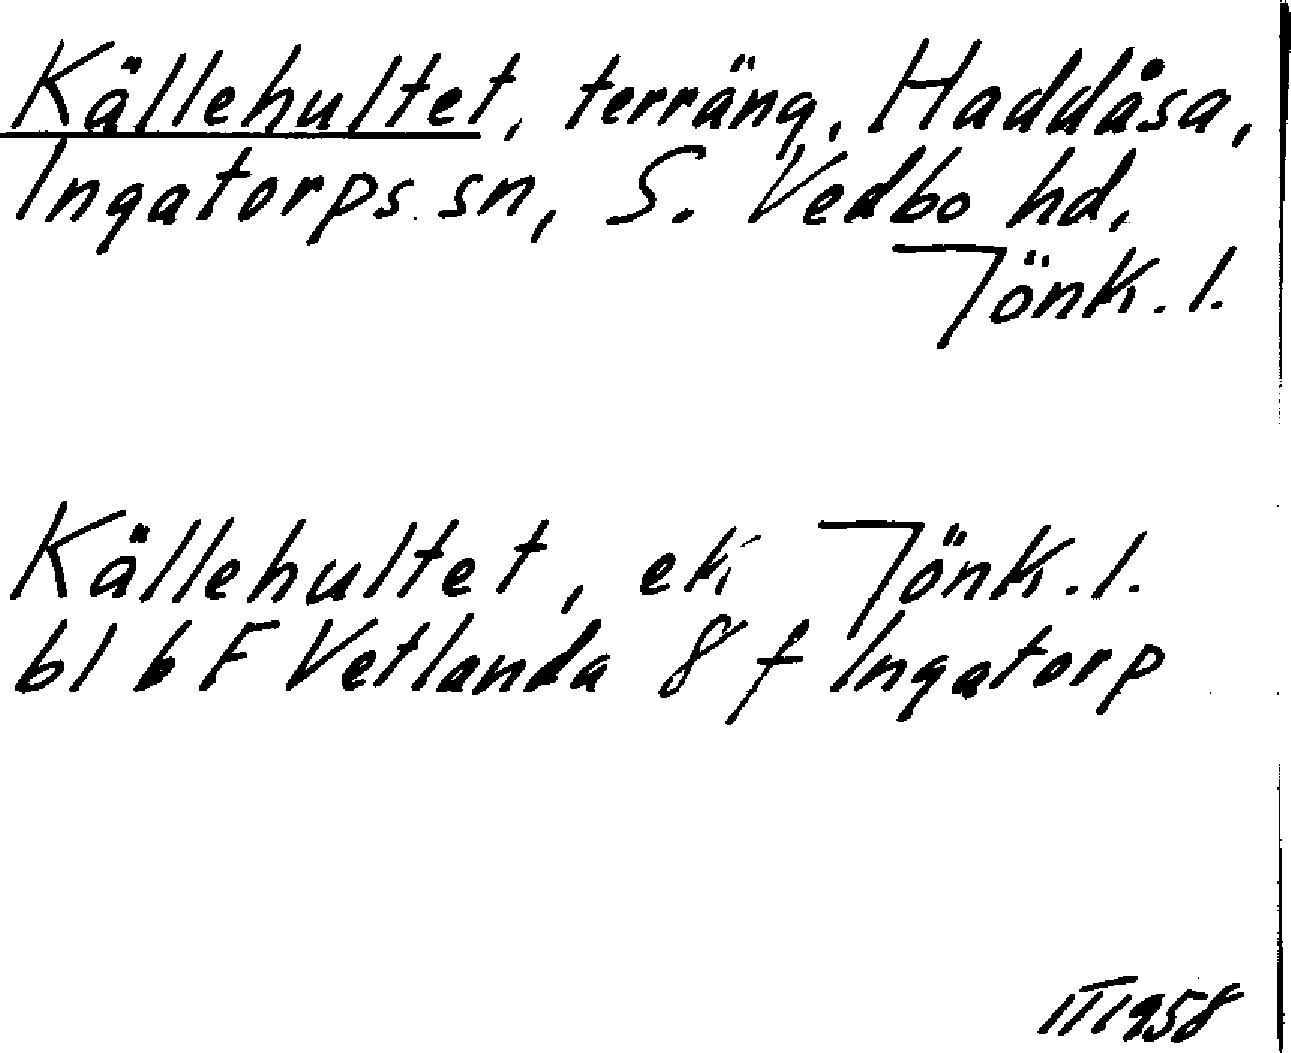 Källehultet, terräng, Haddåsa,
Ingatorps sn, S. Vedbo hd,
Jönk. l.
Källehultet, ek Jönk. l.
bl b F Vetlanda 8 f Ingatorp
IT 1958